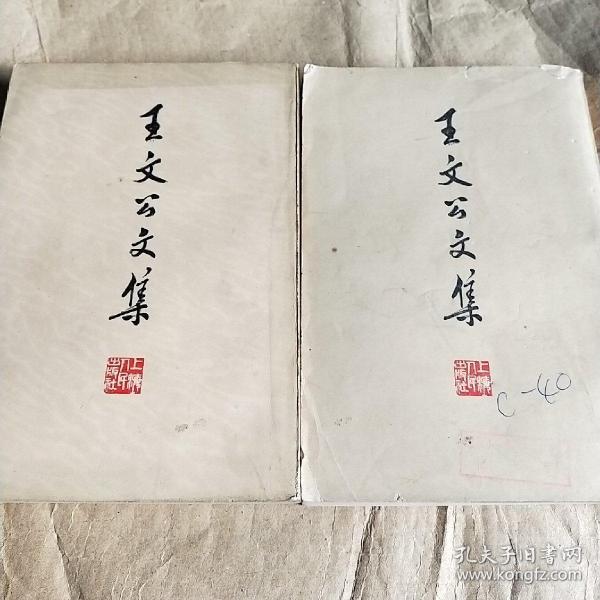 王文公文集
上海人民出版社
王文公文集
上海人民出版社
C-40
孔夫子旧书网
www.kongfz.com